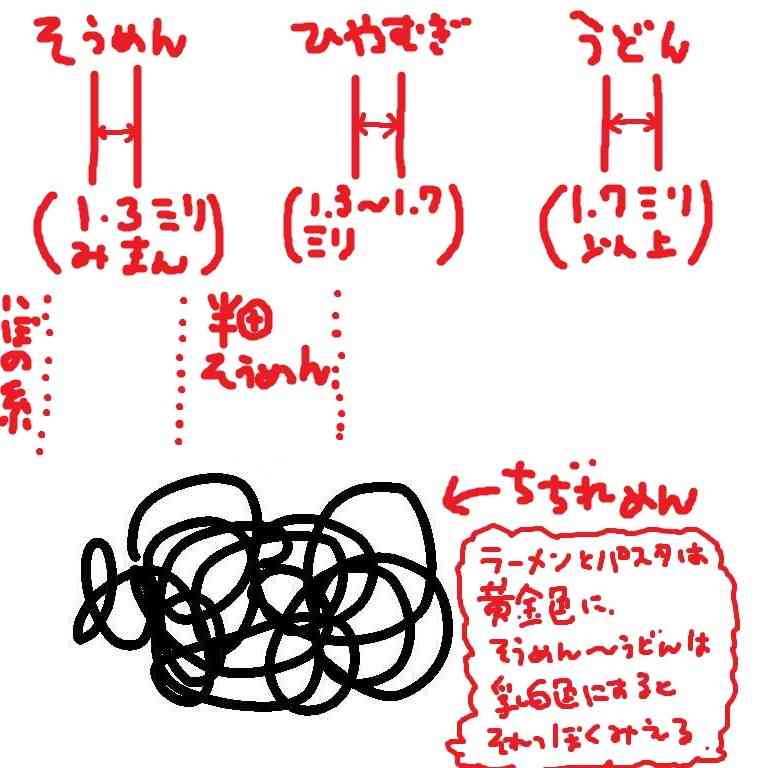 そうめん
ひやむぎ
うどん
(1.3ミリ
みまん)
(1.3~1.7
ミリ)
(1.7ミリ
以上)
揖保の糸
半田
そうめん
←ちぢれめん
ラーメンとパスタは
黄金色に、
そうめん~うどんは
乳白色にすると
それっぽくみえる